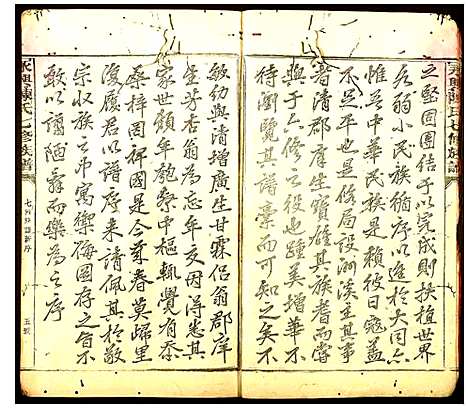 永興陳氏七修族譜
之堅固團結于以完成則扶植世界
各弱小民族循序以進於大同亦
惟茲中華民族是賴被日寇蓋
不足平也族譜開設洲溪主其事
者清郡庠生寶雄其族耆而嘗
與于修者也踵美增華不
待瀏覽其譜稾而可知之矣不
敏幼與清增廣生甘霖侶翁郡庠
生芳杏翁為忘年友因得悉其
家世頻年匏繫中樞輒覺有忝
桑梓罔裨國是今歲春莫歸里
復履君以譜序來請佩其於敬
宗收族之中寓禦侮圖存之旨不
敢以謭陋辭而樂為之序
永興陳氏七修族譜
七修族譜新序
五號